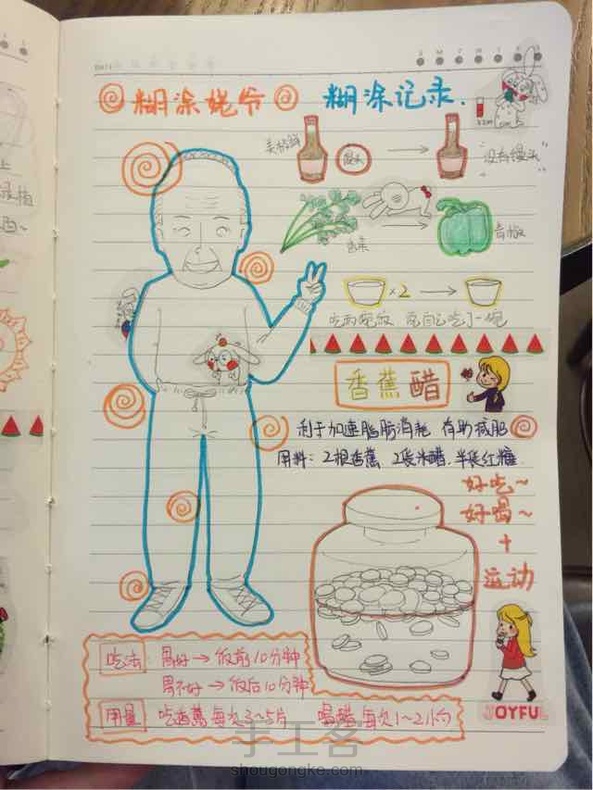 糊涂姥爷 糊涂记录.
馒头
"没有馒头"
香菜
青椒
×2
吃两碗饭 说自己吃了一碗
香蕉醋
利于加速脂肪消耗 有助减肥
用料: 2根香蕉 2袋米醋. 半袋红糖
好吃~
好喝~
+
运动
吃法 胃好→饭前10分钟
胃不好→饭后10分钟
用量 吃香蕉每次3~5片 喝醋每次1~2小勺
JOYFUL
手工客
shougongke.com